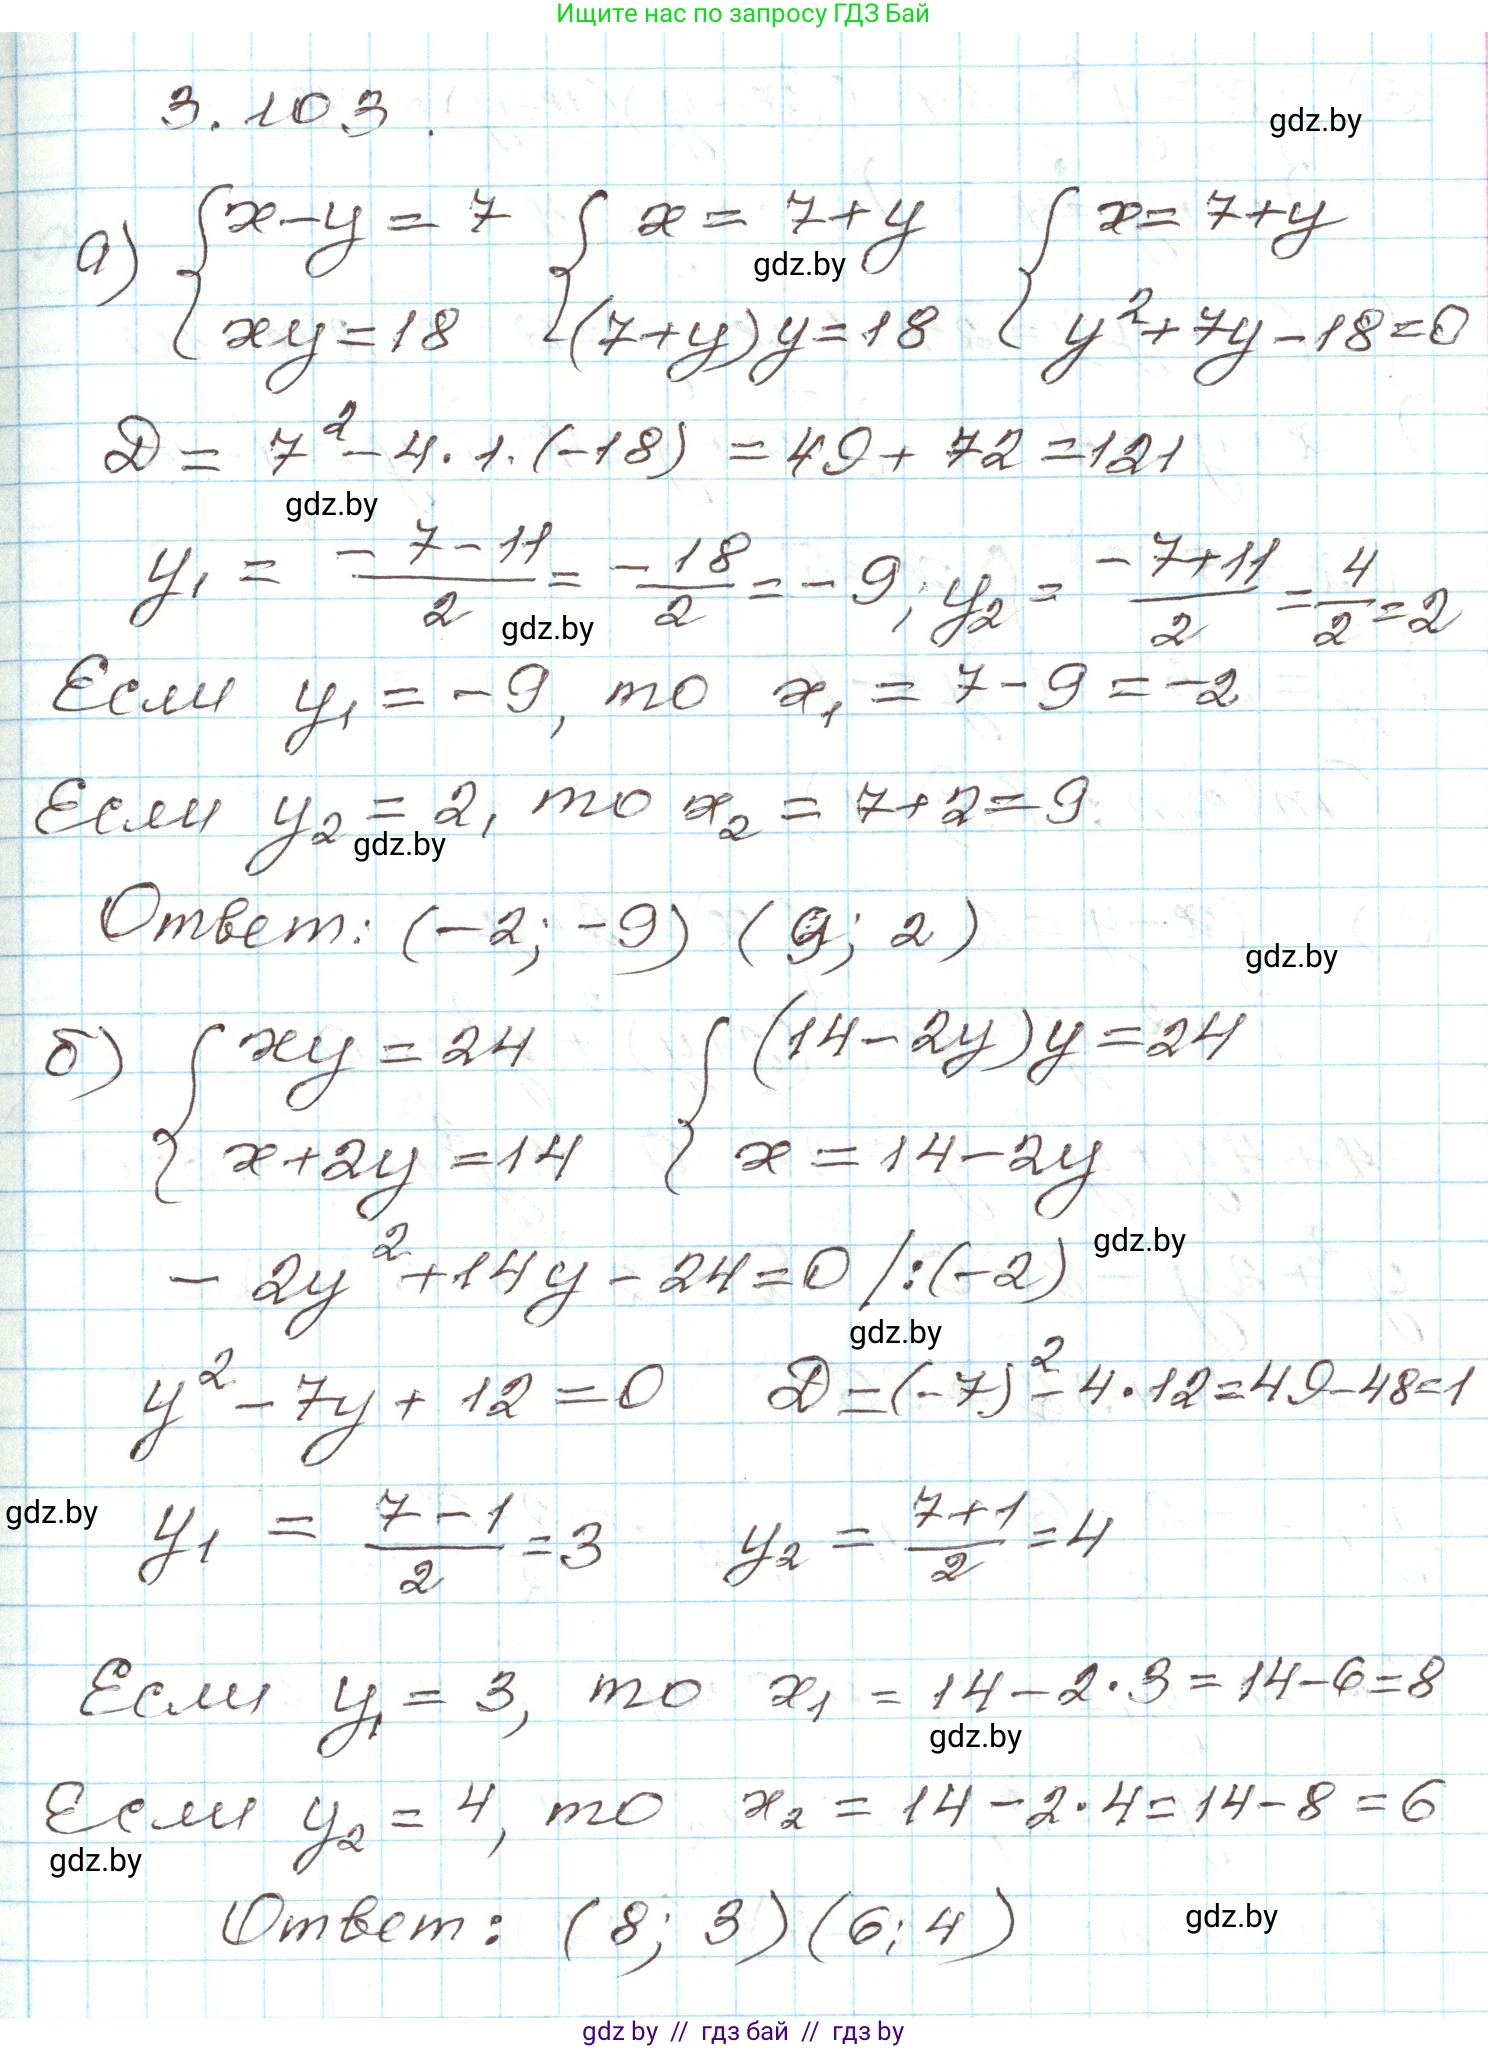 Ищите нас по запросу ГДЗ Бай
3.103.
gdz.by
а) { x-y=7 { x=7+y { x=7+y
gdz.by
xy=18 (7+y)y=18 y²+7y-18=0
D = 7²-4·1·(-18) = 49+72=121
gdz.by
y₁ = (-7-11)/2 = -18/2 = -9; y₂ = (-7+11)/2 = 4/2 = 2
gdz.by
Если y₁ = -9, то x₁ = 7-9=-2
Если y₂ = 2, то x₂ = 7+2=9
gdz.by
Ответ: (-2; -9) (9; 2)
gdz.by
б) { xy=24 { (14-2y)y=24
x+2y=14 x=14-2y
gdz.by
-2y²+14y-24=0 /:(-2)
gdz.by
y²-7y+12=0 D=(-7)²-4·12=49-48=1
gdz.by
y₁ = (7-1)/2 = 3 y₂ = (7+1)/2 = 4
Если y₁ = 3, то x₁ = 14-2·3=14-6=8
gdz.by
Если y₂ = 4, то x₂ = 14-2·4=14-8=6
gdz.by
Ответ: (8; 3) (6; 4)
gdz.by
gdz by // гдз бай // гдз by